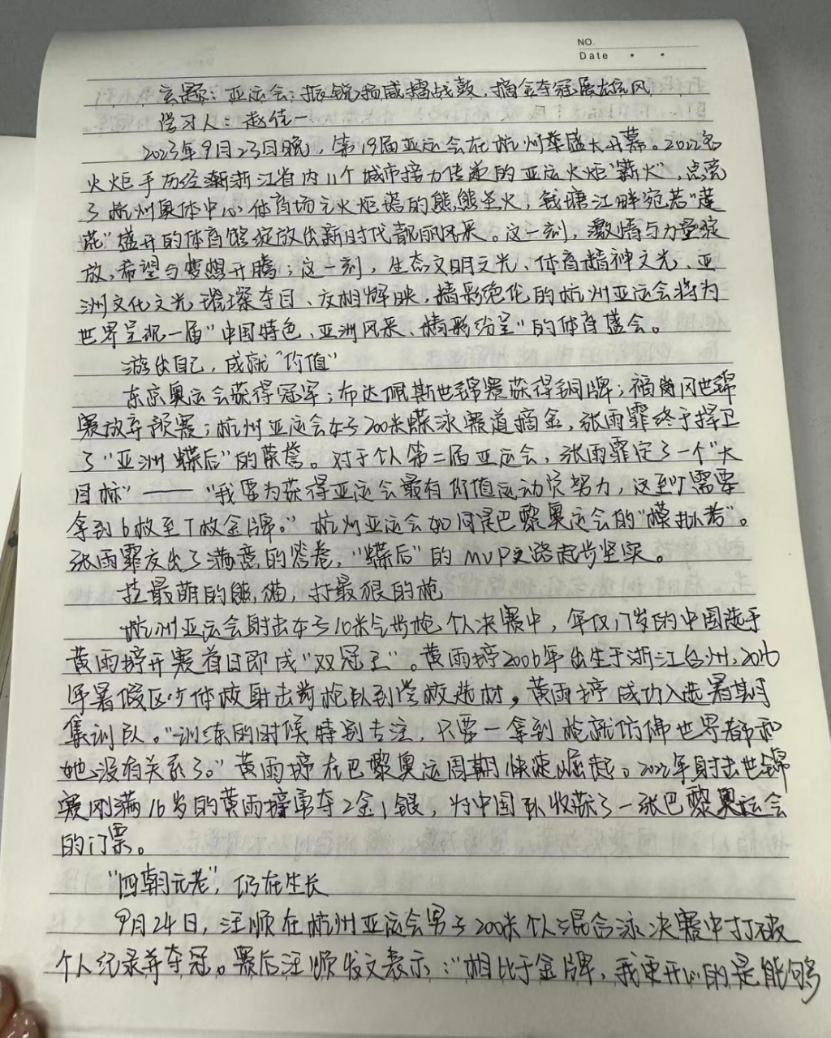 NO.
Date
主题：亚运会：振锐扬威擂战鼓，摘金夺冠展雄风
学习人：赵佳一
2023年9月23日晚，第19届亚运会在杭州举盛大开幕。2022名
火炬手历经浙江省内11个城市接力传递的亚运火炬"薪火"，点亮
了杭州奥体中心体育场主火炬塔的熊熊圣火，钱塘江畔宛若"莲
花"盛开的体育馆绽放出新时代靓丽风采。这一刻，激情与力量绽
放，希望与梦想升腾；这一刻，生态文明之光、体育精神之光、亚
洲文化之光璀璨夺目、交相辉映，精彩绝伦的杭州亚运会将为
世界呈现一届"中国特色、亚洲风采、精彩纷呈"的体育盛会。
游出自己，成就"价值"
东京奥运会获得冠军；布达佩斯世锦赛获得铜牌；福岗冈世锦
赛放弃预赛；杭州亚运会女子200米蝶泳赛道摘金，张雨霏终于捍卫
了"亚洲蝶后"的荣誉。对于个人第二届亚运会，张雨霏定了一个"大
目标"——"我要为获得亚运会最有价值运动员努力，这至少需要
拿到6枚至7枚金牌。"杭州亚运会如同是巴黎奥运会的"模拟考"。
张雨霏交出了满意的答卷，"蝶后"的MVP之路起步坚实。
拉最萌的熊猫，打最狠的枪
杭州亚运会射击女子10米气步枪个人决赛中，年仅17岁的中国选手
黄雨婷开赛首日即成"双冠王"。黄雨婷2006年出生于浙江台州，2016
年暑假区少体校射击步枪队到学校选材，黄雨婷成功入选暑期
集训队。"训练的时候特别专注，只要一拿到枪就仿佛世界都和
她没有关系了。"黄雨婷在巴黎奥运周期快速崛起。2022年射击世锦
赛刚满16岁的黄雨婷勇夺2金1银，为中国队收获了一张巴黎奥运会
的门票。
"四朝元老"，仍在生长
9月24日，汪顺在杭州亚运会男子200米个人混合泳决赛中打破
个人纪录并夺冠。赛后汪顺发文表示："相比于金牌，我更开心的是能够